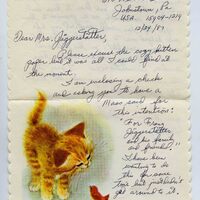 Johnstown, Pa
USA. 15904-1214
12/24/89
Dear Mrs. Jäggerstätter,
Please excuse the cozy kitten
paper but it was all I could find at
the moment.
I am enclosing a check
and asking you to have a
Mass said for
this intention:
"For Franz
Jäggerstätter
and his family
and friends."
I have been
wanting to do
this for some
time but just didn't
get around to it.